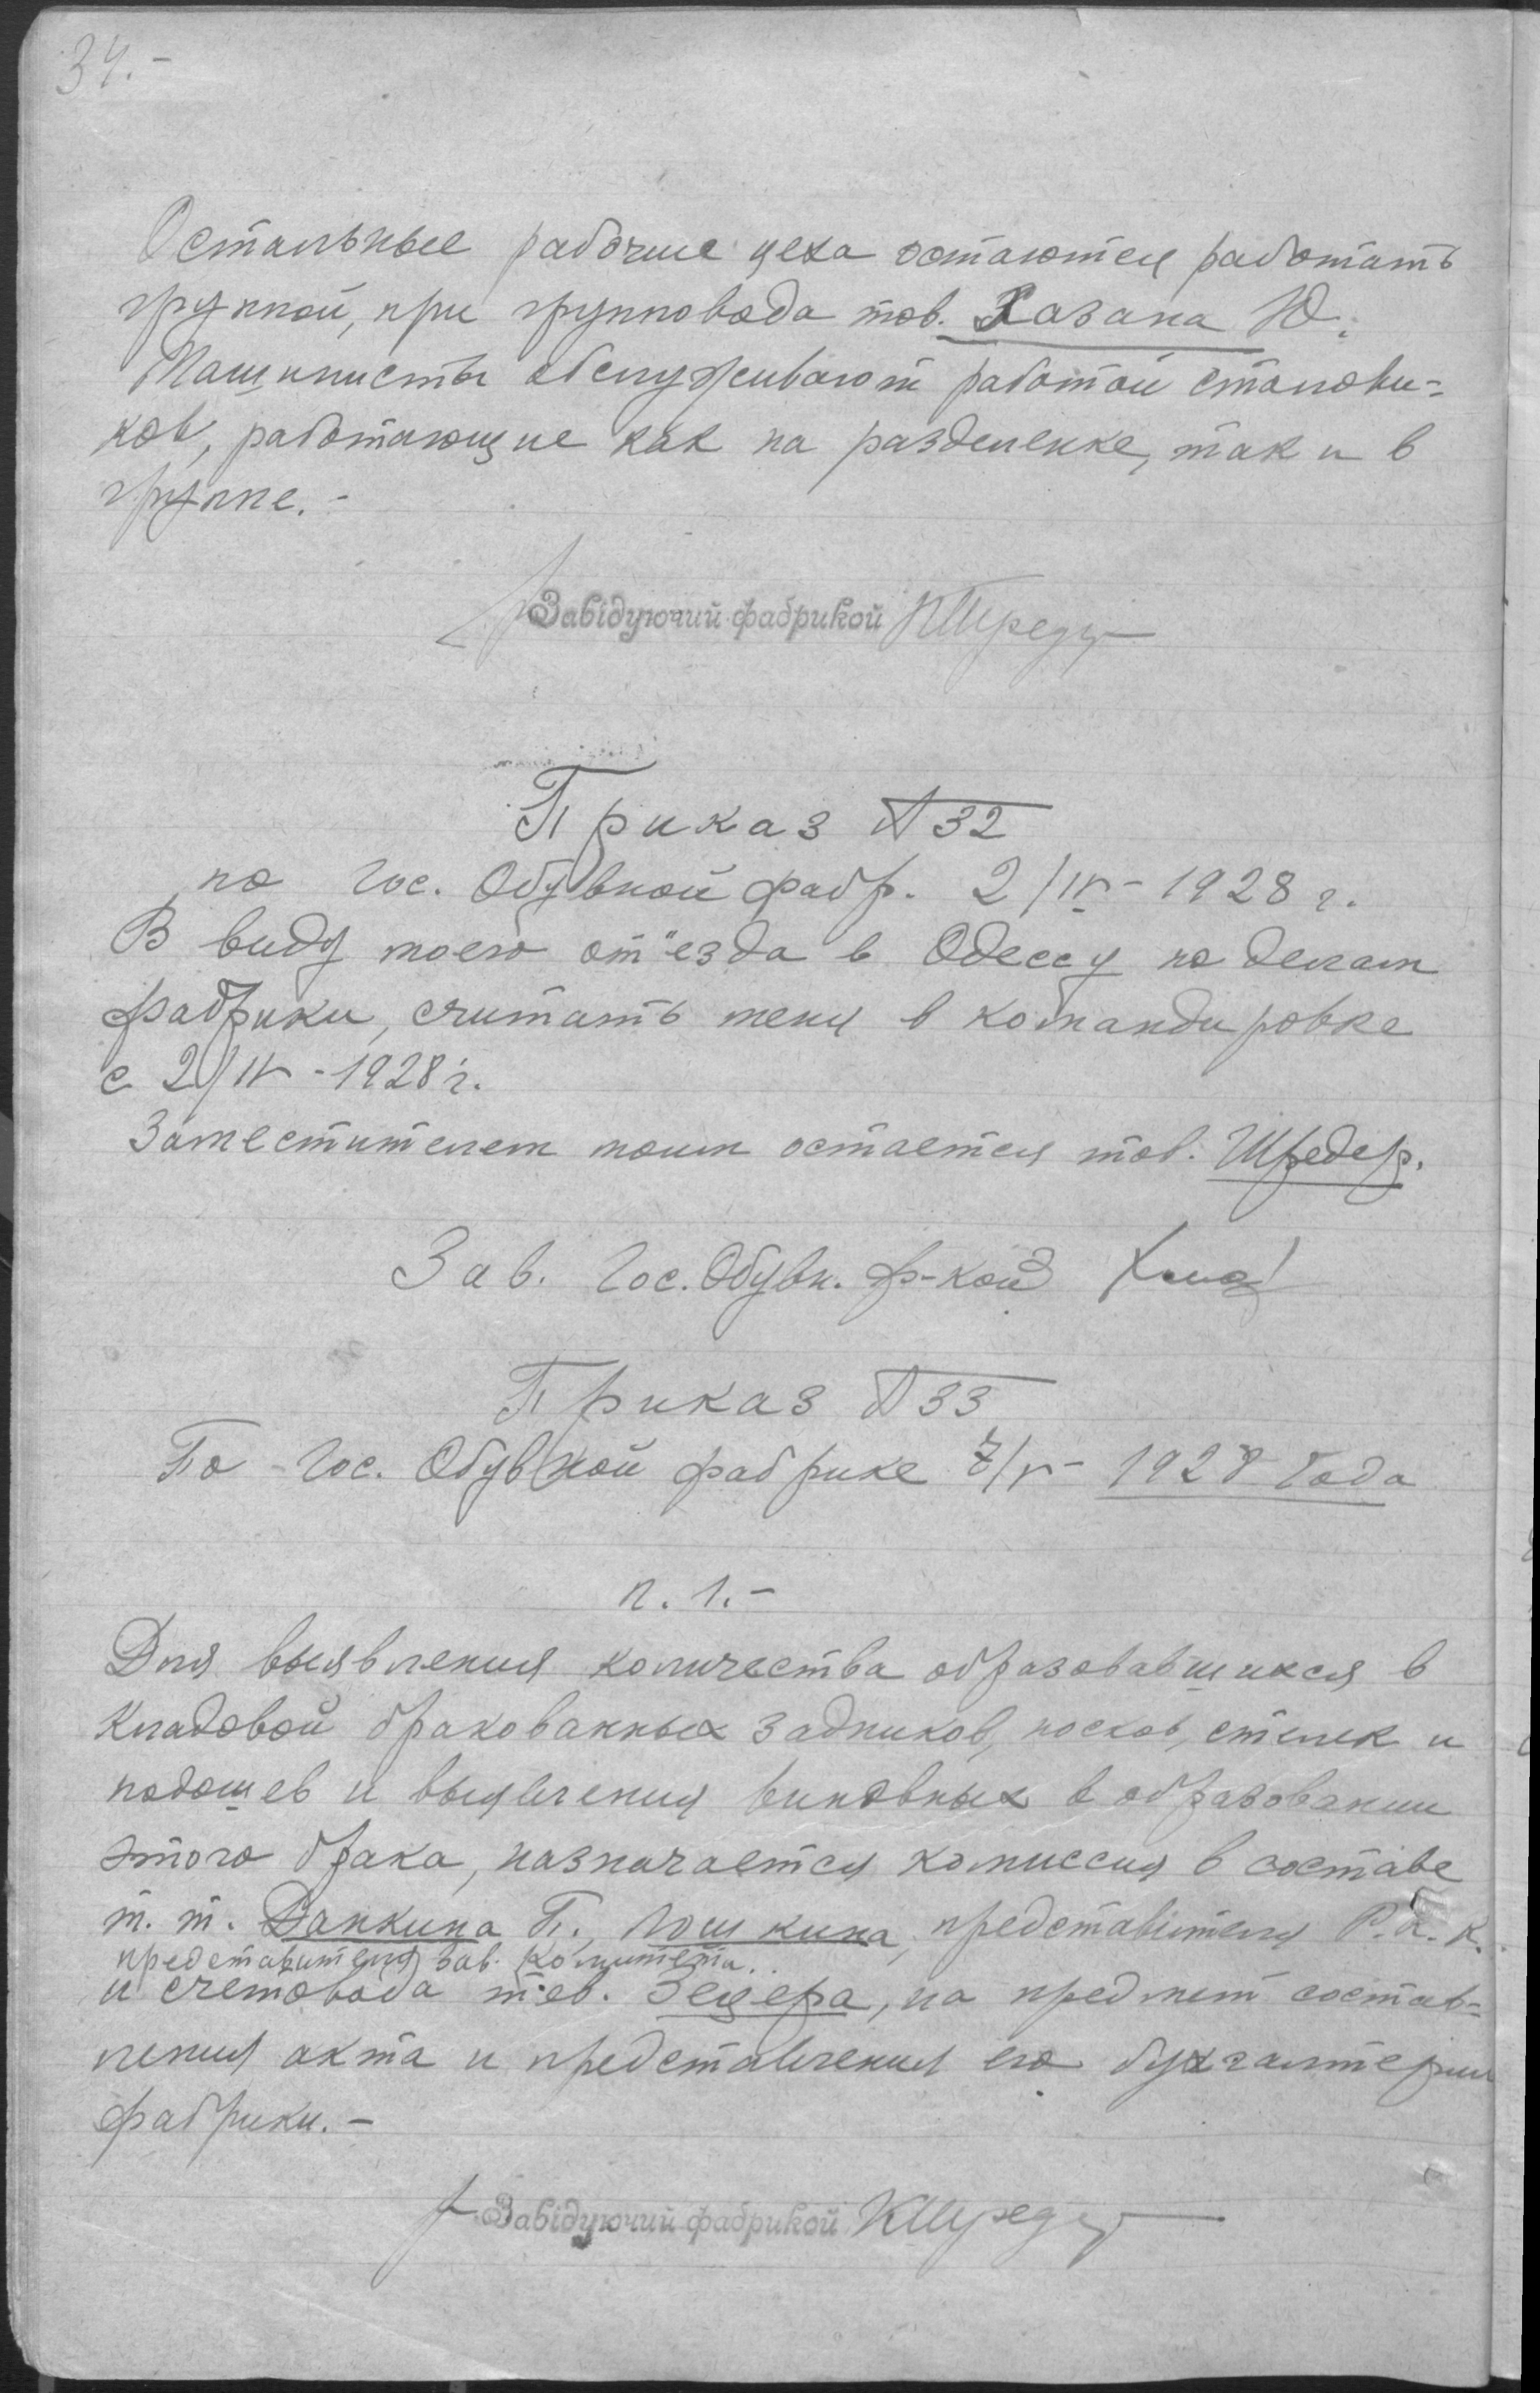 34.-
Остальные рабочие цеха остаются работать
группой, при групповода тов. Хазана Ю.
Машинисты обслуживают работой станови-
ков, работающие как на разделенке, так и в
группе. -
Завідуючий фабрикой КШредер
Приказ № 32
по Гос. Обувной фабр. 2/IV - 1928 г.
В виду моего от"езда в Одессу по делам
фабрики, считать меня в командировке
с 2/IV - 1928 г.
Заместителем моим остается тов. Шредер.
Зав. Гос. Обувн. ф-кой
Приказ № 33
По Гос. Обувной фабрике 7/V - 1928 Года
п. 1. -
Для выявления количества образовавшихся в
кладовой бракованных задников, носков, стелек и
подошев и выявления виновных в образовании
этого брака, назначается комиссия в составе
т. т. Данкина П., Лошкина, представителя Р.К.К.
представителя Зав. Комитета.
и счетовода тов. Зецера, на предмет состав-
ления акта и представления его бухгалтерии
фабрики. -
Завідуючий фабрикой КШредер